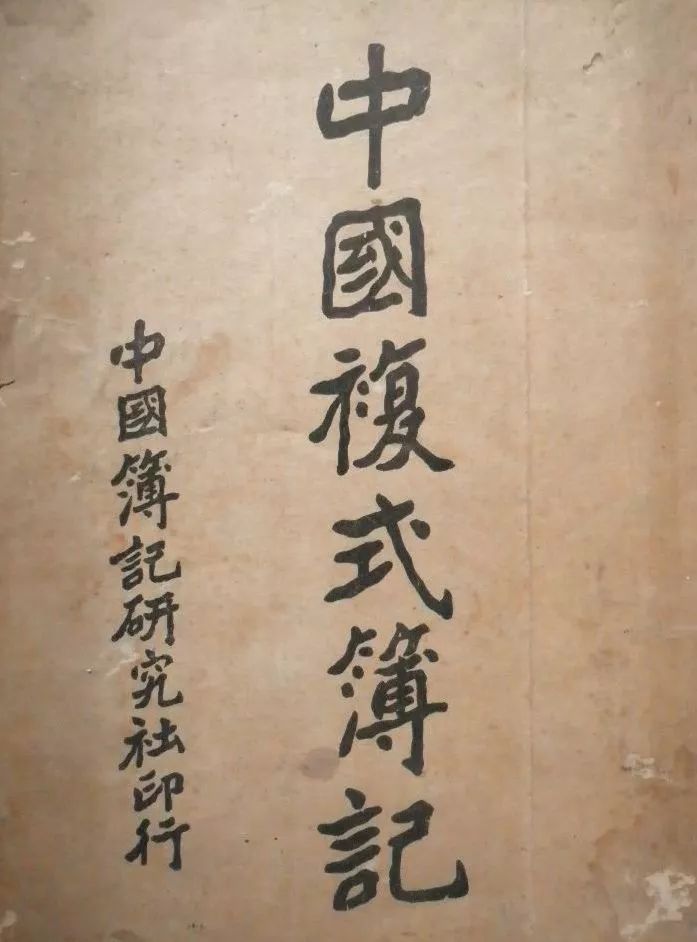 中國複式簿記
中國簿記研究社印行